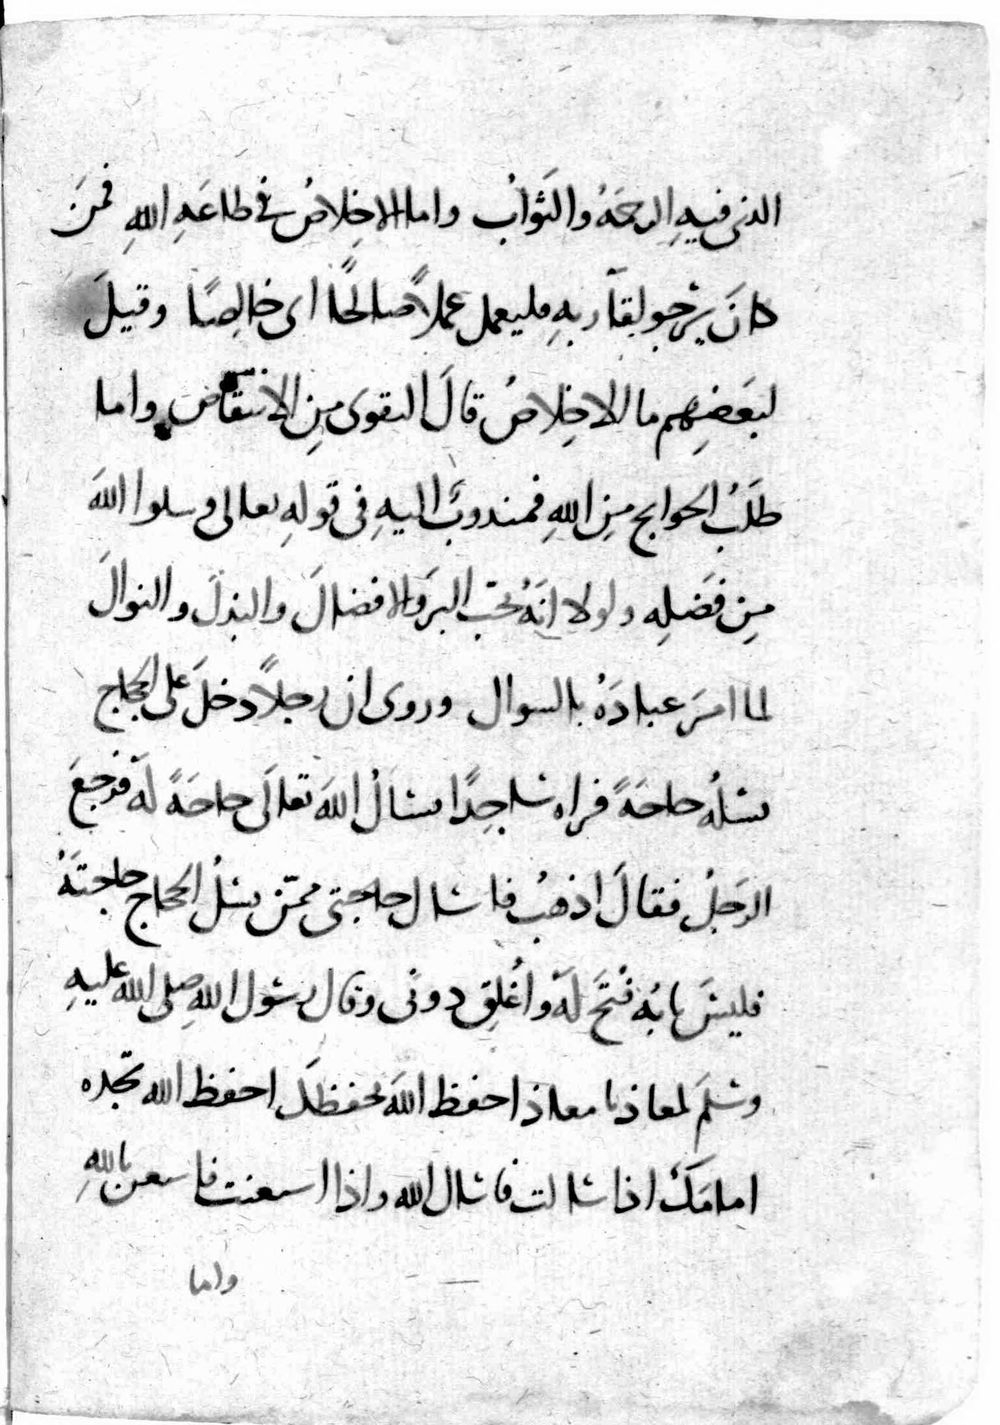 الذى فيهِ الرحمَةُ والثَوابُ واما الاخِلاصُ فى طاعَهِ اللهِ فمَنَ
كانَ يَرجو لِقآ ربهِ فليعمل عملاً صالحًا اى خالِصًا وقيلَ
لبَعَضِهِم ما الاخِلاصُ قالَ التقوى مِنِ الانتقاض واما
طَلَبُ الحوايج مِنِ اللهِ فمندوبٌ اليهِ فى قولهِ تعالى وسلوا اللهَ
مِنِ فَضَلِه ولولا انَهُ يحَب البرَ والافضالَ والبذلَ والنوالَ
لما امَرَ عبادَهُ بالسوال وروى ان رجلاً دخلَ على الحجاج
يسَلهُ حاجَةً فراه ساجِدًا يسَالُ اللهَ تعالَى حاجَةً لهَ فرجعَ
الرَجلُ فقالَ اذهبُ فاسال حاجتى ممّن يسَلُ الحجاج حاجتَهُ
فليسَ بابُه فُتحَ لهَ واُغلِق دونى وقال رسُول اللهِ صلى الله عليهِ
وسَلمَ لمعاذ يا معاذ احفظ اللهَ يحفظكَ احفظ الله تجده
امامَكَ اذا سَالت فاسَال الله واذا استعنت فاستعن باللهِ
واما